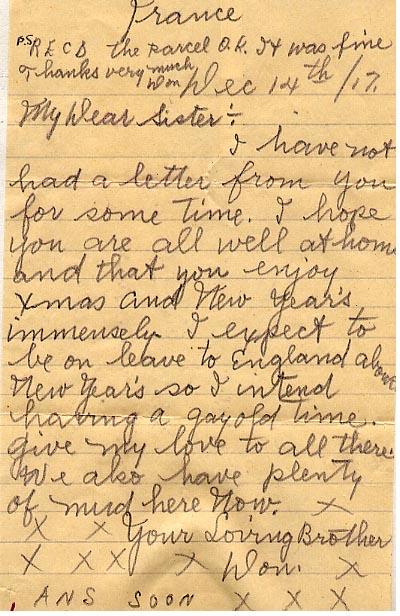 France
P.S. RECD the parcel O.K. It was fine
Thanks very much
Don
Dec 14th /17.
My Dear Sister :-
I have not
had a letter from you
for some time. I hope
you are all well at home
and that you enjoy
Xmas and New Year's
immensely. I expect to
be on leave to England about
New Year's so I intend
having a gay old time.
Give my love to all there.
We also have plenty
of mud here now. X
X X Your Loving Brother
X X X X Don. X
ANS SOON X X X